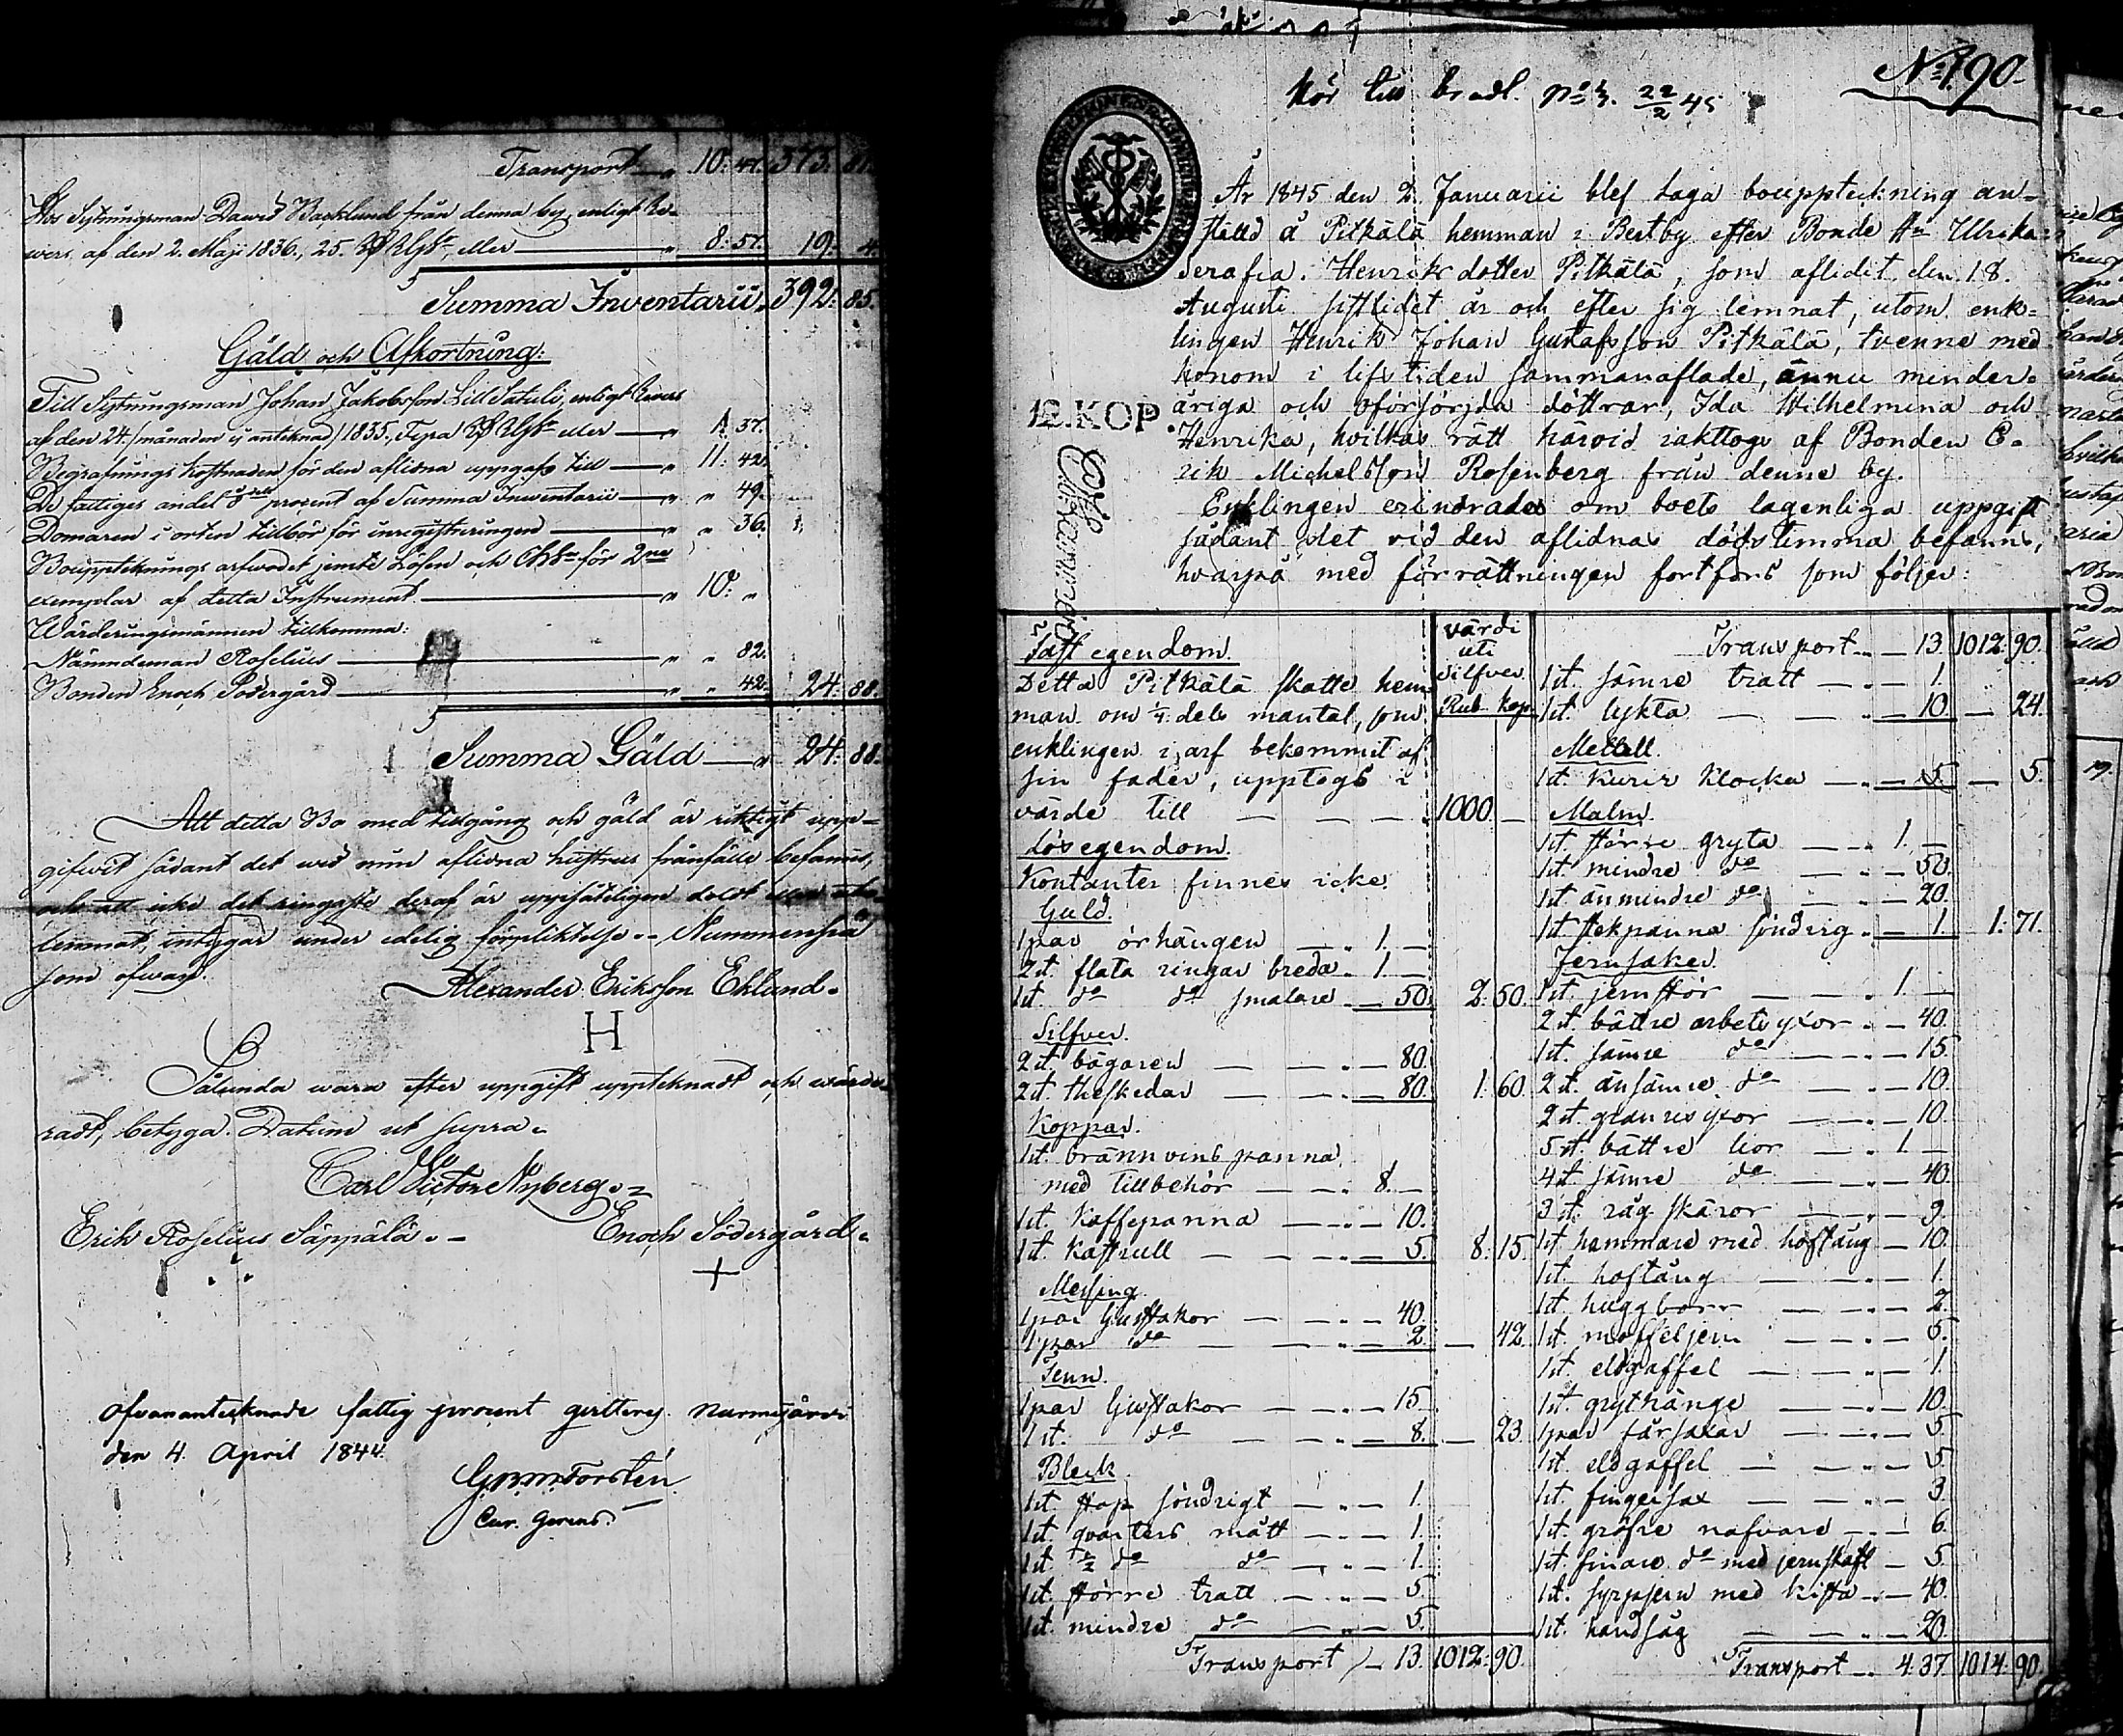 Transport 10: 47. 373: 81.
Hos Sytningsman David Backlund från denna by, enligt Re-
vers af den 2. Maji 1836., 25. RGs, eller 8: 57. 19. 4.
Summa Inventarii. 392: 85.
Gäld och Afkortning:
Till Sytningsman Johan Jakobsson Lill Satuli, enligt Revers
af den 24. /månaden ej anteknad/ 1835, Tjna RGs eller 1. 37.
Begrafnings kostnaden för den aflidna uppgafs till 11: 42.
De fattiges andel procent af Summa Inventarii " 49.
Domaren i orten tillbör för inregistreringen " 36.
Bouppteknings arfvodet jemte Lösen och för 2ne
exemplar af detta Instrument 10: "
Wärderingsmännen tillkomma:
Nämndeman Roselius " 82.
Bonden Enoch Södergård " 42. 24: 88.
Summa Gäld 24: 88.
Att detta Bo med tillgång och gäld är riktigt upp-
gifvit sådant det wid min aflidna hustrus frånfälle befanns,
och att icke det ringaste deraf är uppsåteligen doldt
lemnat, intygar under edelig förpliktelse. Nummenspää
som ofwan.
Alexander Eriksson Eklund.
H
Sålunda wara efter uppgift uppteknadt och wärde-
radt, betyga. Datum ut supra.
Carl Victor Nyberg.
Erik Roselius Säppälä. Enoch Södergård.
+
Ofvanantecknade fattig procent qvitteras. Nurmijärvi
den 4. April 1844.
Forstén.
Cur. Gerens.
No. 190.
Hör till No 3. 22/2 45
År 1845 den 2. Januarii blef laga bouppteckning an-
stäld å Pitkälä hemman i Bertby efter Bonde Hu Ulrika
Serafia Henriksdotter Pitkälä, som aflidit den 18.
Augusti sistlidet år och efter sig lemnat, utom enk-
lingen Henrik Johan Gustafsson Pitkälä, tvenne med
honom i lifstiden sammanaflade, ännu minder-
åriga och oförsörjda döttrar, Ida Wilhelmina och
12. KOP.
Henrika, hvilkas rätt härvid iakttogs af Bonden E-
rik Michelsson Rosenberg från denne by.
Enklingen erindrades om boets lagenliga uppgift
sådant det vid den aflidnas dödstimma befanns,
hvarpå med förrättningen fortfors som följer:
Fast egendom.
värdi uti Silfver. Rub. Kop.
Detta Pitkälä skatte hem-
man om 1/4 dels mantal, som
enklingen i arf bekommit af
sin fader, upptogs i
värde till 1000. —
Lös egendom.
Kontanter finnes icke.
Guld.
1 par örhängen 1. —
2 st. flata ringar breda 1. —
1 st. do do smalare 50. 2: 50.
Silfver.
2 st. bägaren 80.
2 st. theskedar 80. 1: 60.
Koppar.
1 st. brännvins panna
med tillbehör 8. —
1 st. Kaffepanna 10.
1 st. Kastrull 5. 8: 15.
Messing.
1 par Ljusstakor 40.
1 par do 2. — 42.
Tenn.
1 par Ljusstakor 15.
1 st. do 8. — 23.
Bleck.
1 st. stop söndrigt 1.
1 st. qvarters mått 1.
1 st. 1/2 do do 1.
1 st. större tratt 5.
1 st. mindre do 5.
Transport 13. 1012: 90.
Transport 13. 1012: 90.
1 st. sämre tratt 1.
1 st. lykta 10. — 24.
Metall.
1 st. Kurir Klocka 5. — 5.
Malm.
1 st. större gryta 1. —
1 st. mindre do 50.
1 st. änmindre do 20.
1 st. stekpanna söndrig 1. 1: 71.
Jernsaker.
1 st. jernstör 1. —
2 st. bättre arbetsyxor 40.
1 st. sämre do 15.
2 st. änsämre do 10.
2 st. granrisyxor 10.
5 st. bättre lior 1. —
4 st. sämre do 40.
3 st. råg skäror 9.
1 st. hammare med hoftång 10.
1 st. hoftång 1.
1 st. huggborr 2.
1 st. moffeljern 5.
1 st. eldgaffel 1.
1 st. grythänge 10.
1 par fårsaxar 5.
1 st. eldgaffel 5.
1 st. fingersax 3.
1 st. gröfre nafvare 6.
1 st. finare do med jernskaft 5.
1 st. syrpjern med Kista 40.
1 st. handsåg 20.
Transport 4. 37. 1014: 90.